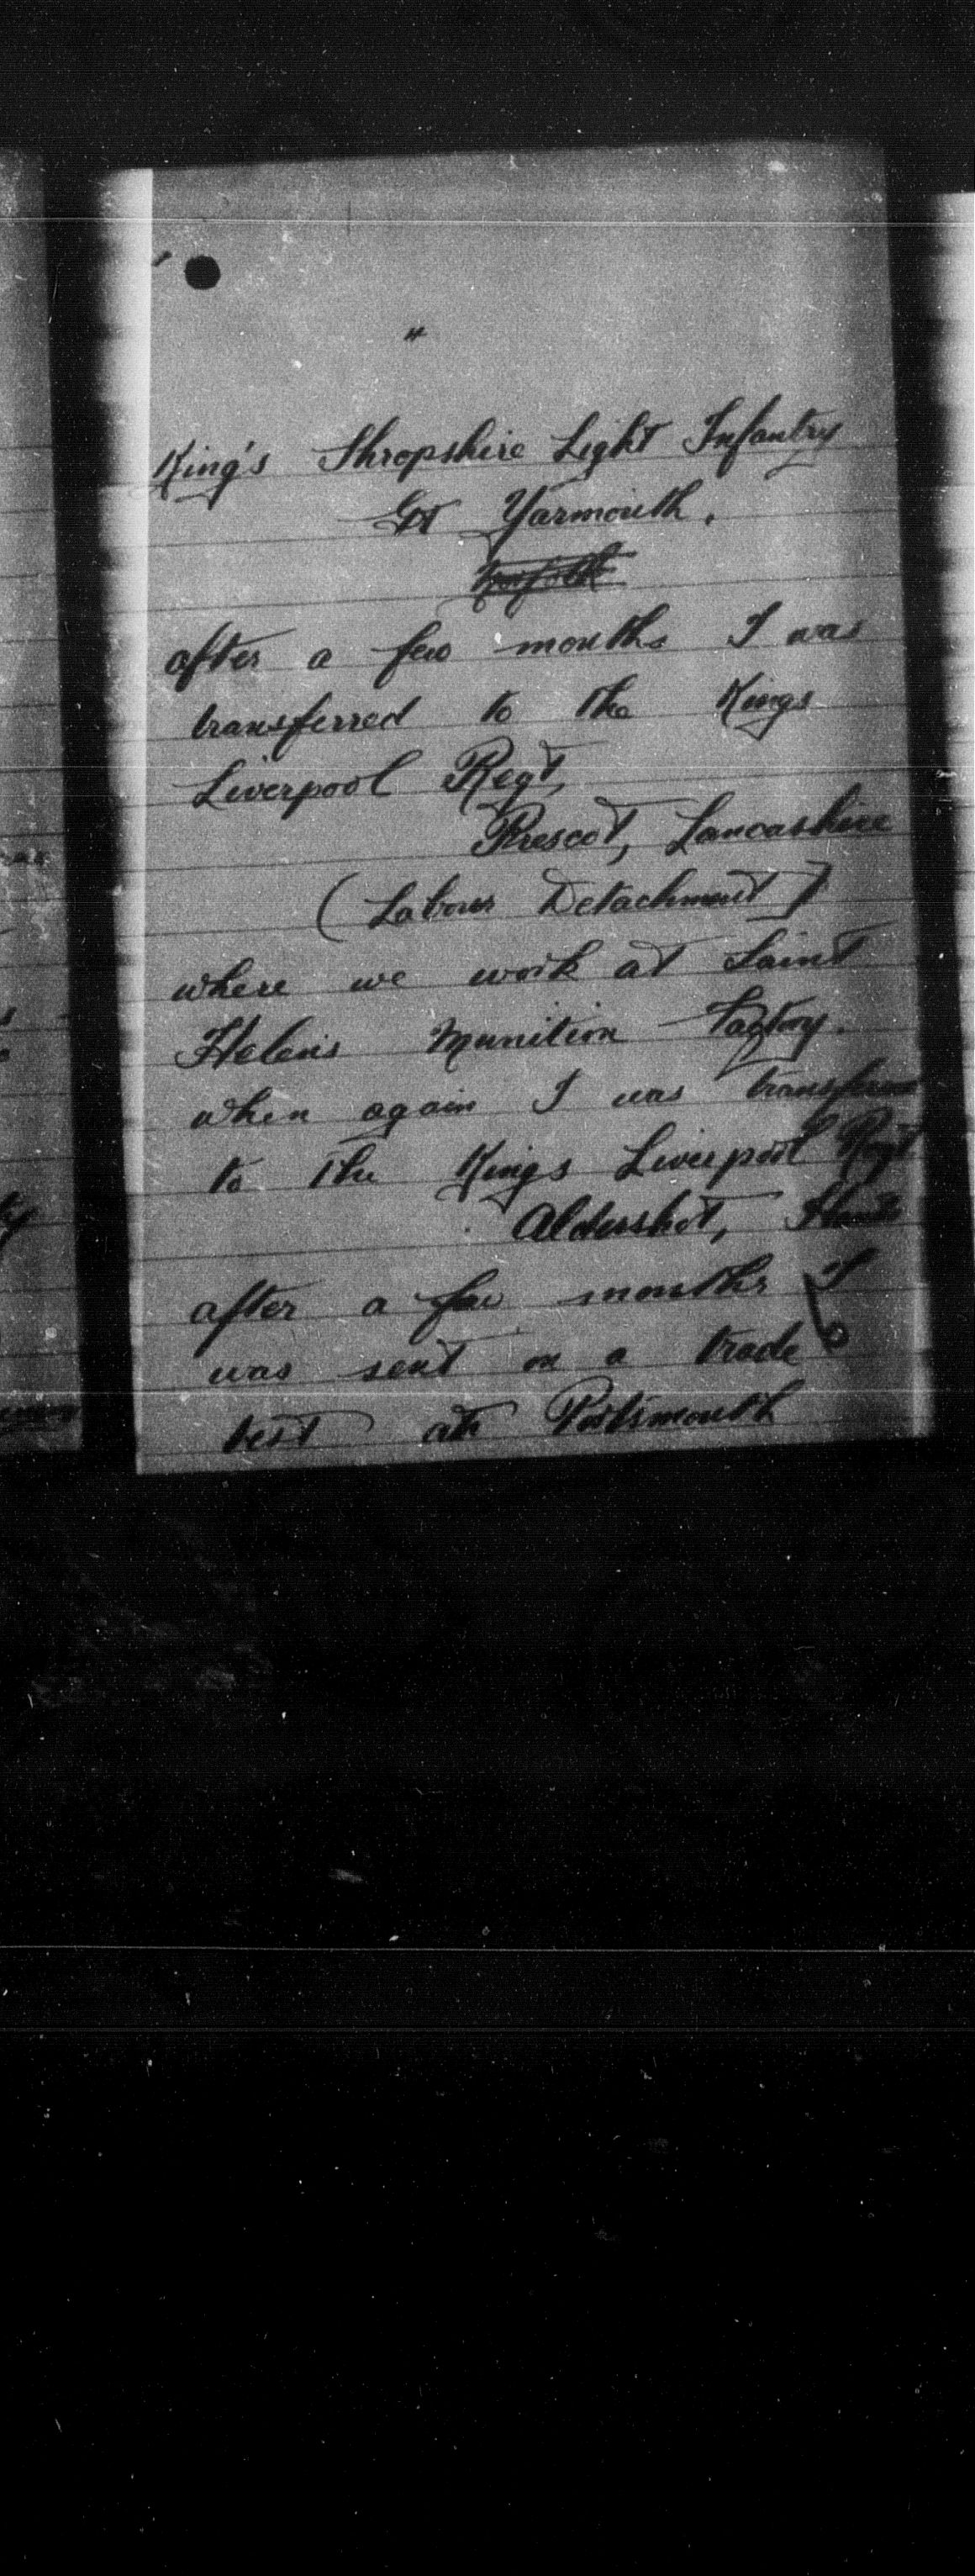 "
King's Shropshire Light Infantry
Gt Yarmouth.
Norfolk
after a few months I was
transferred to the Kings
Liverpool Regt,
Prescot, Lancashire
(Labour Detachment)
where we work at Saint
Helens Munition Factory.
when again I was transferred
to the Kings Liverpool Regt
Aldershot, Hants
after a few months I
was sent on a trade
test at Portsmouth